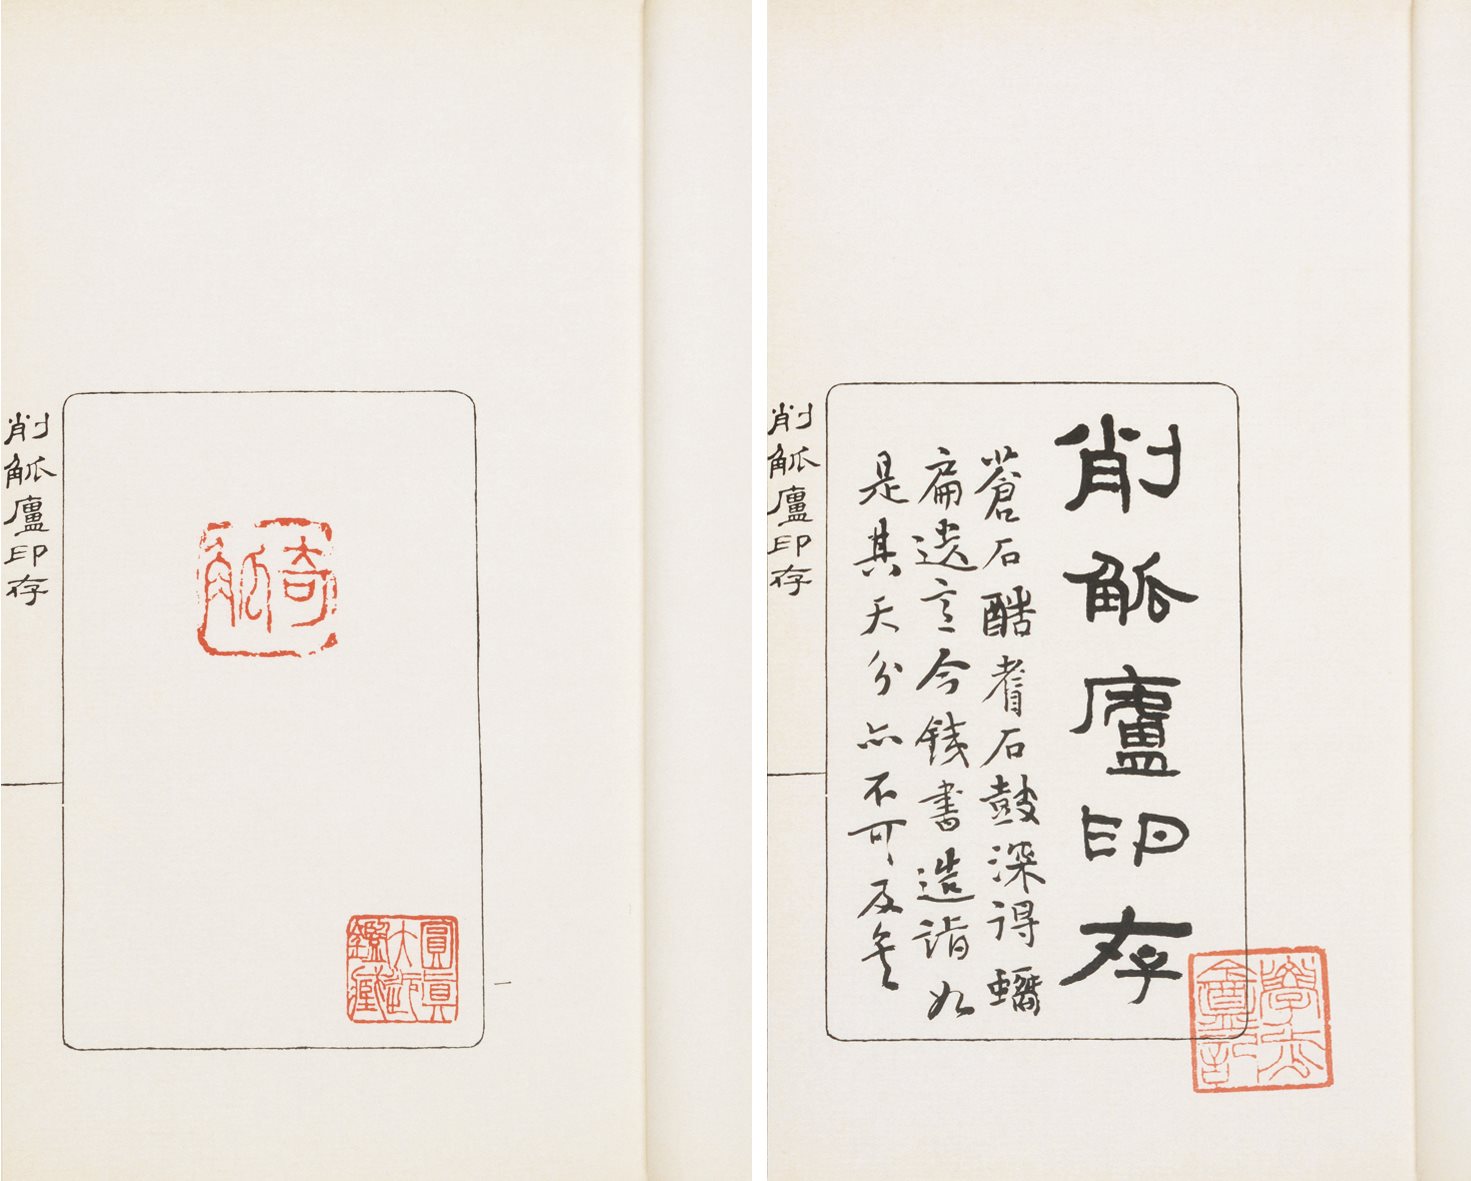 削觚廬印存
蒼石酷耆石鼓深得
扁遺意今鐵書造詣如
是其天分亦不可及矣
削觚廬印存
奇觚
削觚廬印存